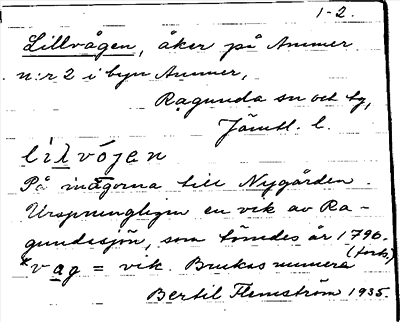 1-2.
Lillvågen, åker på Ammer
n:r 2 i byn Ammer,
Ragunda sn och tg,
Jämtl. l.
lìlvójen
På inägorna till Nygården.
Ursprungligen en vik av Ra-
gundasjön, som tömdes år 1796.
*vag = vik. Brukas numera (fork.)
Bertil Flemström 1935.